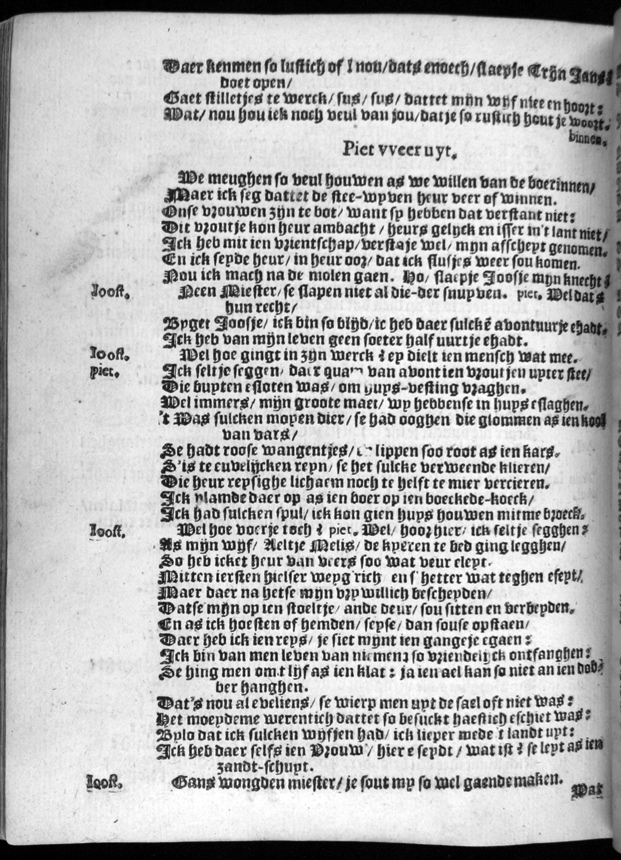 Daer kenmen so lustich of / nou/dats enoech/slaepje Trijn Jans?
doet open/
Gaet stilletjes te werck/sus/sus/dattet mijn wijf niet en hoort:
Wat/nou hou ick noch veul van jou/dat je so rustich hout je woort.
binnen.
Piet vveer uyt.
We meughen so veul houwen as we willen van de boerinnen/
Maer ick seg dattet de stee-wyven heur veer of winnen.
Onse vrouwen zijn te bot/want sy hebben dat verstant niet:
Dit vrout je kon heur ambacht/heurs gelyck en isser in't lant niet/
Ick heb mit ien vrientschap/verstaje wel/mijn afscheyt genomen.
En ick seyde heur/in heur oor/dat ick flusjes weer sou komen.
Nou ick mach na de molen gaen. Ho/slaepje Joosje mijn knecht?
Joost. Neen Miester/se slapen niet al die-der snuyven. piet. Wel dat's
hun recht/
Byget Joosje/ick bin so blijd/ic heb daer sulckē avontuurtje ehadt.
Ick heb van mijn leven geen soeter half uurtje ehadt.
Joost. Wel hoe gingt in zijn werck? ey dielt ien mensch wat mee.
piet. Ick selt je seggen/daer quam van avont ien vrout jen upter stee/
Die buyten esloten was/om huys-vesting vraghen.
Wel immers/mijn groote maet/wy hebbense in huys eslaghen.
't Was sulcken moyen dier/se had ooghen die glommen as ien kool
van vars/
Se hadt roose wangentjes/ lippen soo root as ien kars.
S'is te euvelijcken reyn/se het sulcke verweende klieren/
Die heur reysighe lichaem noch te helft te mier vercieren.
Ick vlamde daer op as ien boer op ien boeckede-koeck/
Ick had sulcken spul/ick kon gien huys houwen mit me broeck.
Joost. Wel hoe voer je toch? piet. Wel/hoor hier/ick selt je segghen:
As mijn wijf/Aeltje Melis/de kyeren te bed ging legghen/
So heb icket heur van veers soo wat veur eleyt.
Mitten iersten hielser weyg'rich en s'hetter wat teghen eseyt/
Maer daer na hetse mijn vry willich bescheyden/
Datse mijn op ien stoeltje/ande deur/sou sitten en verbeyden.
En as ick hoesten of hemden/seyse/dan souse opstaen/
Daer heb ick ien reys/je siet mynt ien gangeje egaen:
Ick bin van men leven van niement so vriendelijck ontfanghen:
Se hing men om't lijf as ien klat: ja ien ael kan so niet an ien dob-
ber hanghen.
Dat's nou al eveliens/se wierp men upt de sael oft niet was:
Het moeydeme werentich dattet so besuckt haestich eschiet was:
Bylo dat ick sulcken wijfjen had/ick lieper mede 't landt uyt:
Ick heb daer selfs ien Vrouw'/hier eseydt/wat ist? se leyt as ien
zandt-schuyt.
Joost. Gans wongden miester/je sout my so wel gaende maken.
Wat